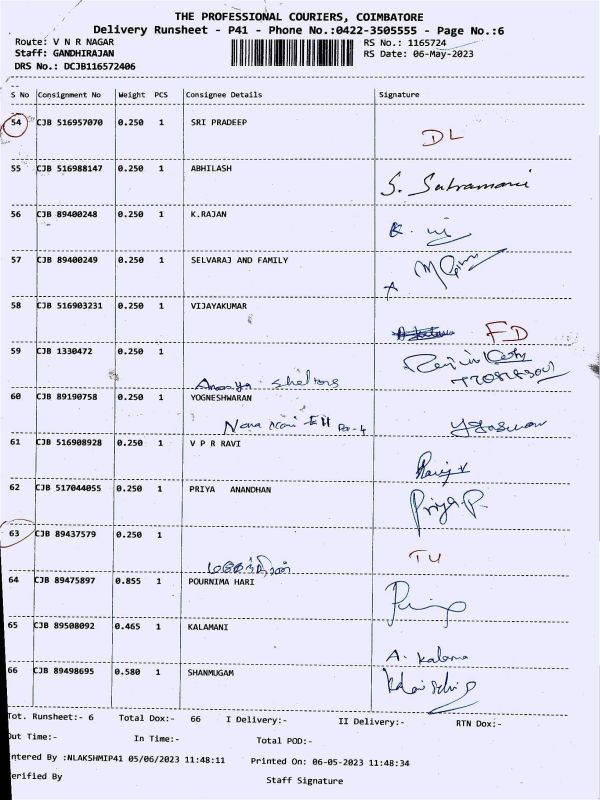 THE PROFESSIONAL COURIERS, COIMBATORE
Delivery Runsheet - P41 - Phone No.:0422-3505555 - Page No.:6
Route: V N R NAGAR RS No.: 1165724
Staff: GANDHIRAJAN RS Date: 06-May-2023
DRS No.: DCJB116572406
S No Consignment No Weight PCS Consignee Details Signature
54 CJB 516957070 0.250 1 SRI PRADEEP DL
55 CJB 516988147 0.250 1 ABHILASH S.
56 CJB 89400248 0.250 1 K.RAJAN
57 CJB 89400249 0.250 1 SELVARAJ AND FAMILY
58 CJB 516903231 0.250 1 VIJAYAKUMAR FD
59 CJB 1330472 0.250 1
Shelters
60 CJB 89190758 0.250 1 YOGNESHWARAN
61 CJB 516908928 0.250 1 V P R RAVI
62 CJB 517044055 0.250 1 PRIYA ANANDHAN Priya.P.
63 CJB 89437579 0.250 1 TU
64 CJB 89475897 0.855 1 POURNIMA HARI
65 CJB 89508092 0.465 1 KALAMANI A. Kalama
66 CJB 89498695 0.580 1 SHANMUGAM
Tot. Runsheet:- 6 Total Dox:- 66 I Delivery:- II Delivery:- RTN Dox:-
Out Time:- In Time:- Total POD:-
ntered By :NLAKSHMIP41 05/06/2023 11:48:11 Printed On: 06-05-2023 11:48:34
erified By Staff Signature